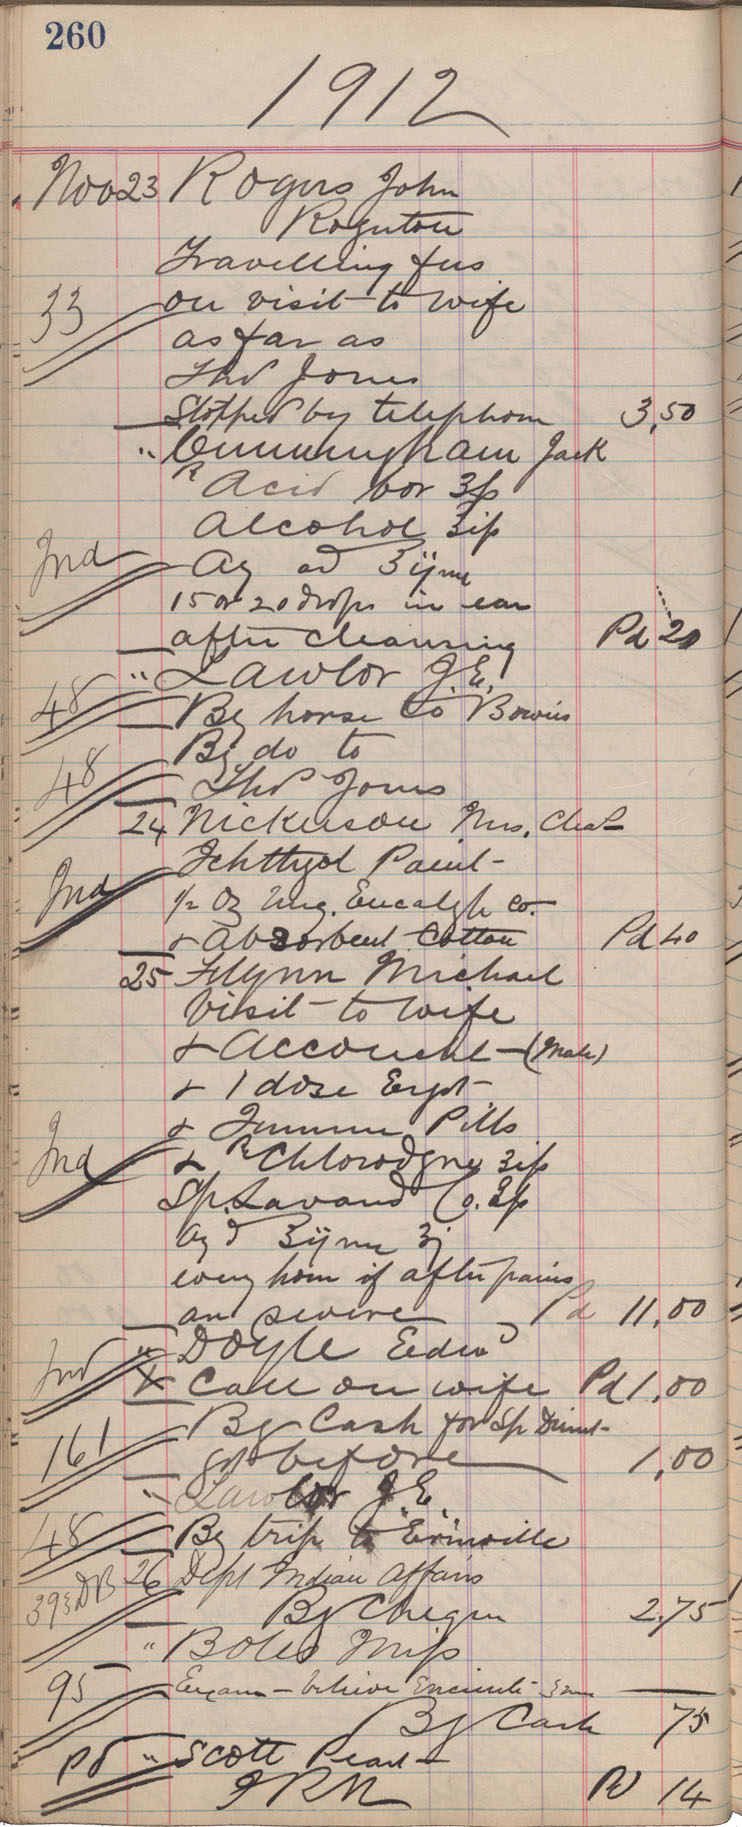 260
1912
Nov 23 Rogers John
Roynton
Travelling fees
33 on visit to wife
as far as
Thos Jones
Stopped by telephone 3,50
" Cunningham Jack
℞ Acid bor ʒß
Alcohol ʒiß
Ind Aq ad ℥ij
15 or 20 drops in ear
after cleansing Pd 20
" Lawlor J.E.
48 By horse to Bowies
By do to
48 Thos Jones
24 Nickerson Mrs. Chas
Ichthyol Paint
Ind ½ Oz Ung. Eucalyp Co.
& absorbent Cotton Pd 40
25 Flynn Michael
Visit to wife
& Accouchl (Male)
& 1 dose Ergot
& Pills
Ind & ℞ Chlorodyne ʒiß
Sp. Lavand Co. ʒß
Aq ad ℥ij ʒj
every hour if after pains
are severe Pd 11,00
Ind " Doyle Edwd
X Call on wife Pd 1,00
By Cash for
161 got before 1,00
" Lawlor J.E.
48 By trip to "Erinville
393 DB 26 Dept Indian Affairs
By Cheque 2.75
" Boles Miss
95 Exam - believe Enciente
By Cash 75
Pd " Scott Pearl
Pd 14